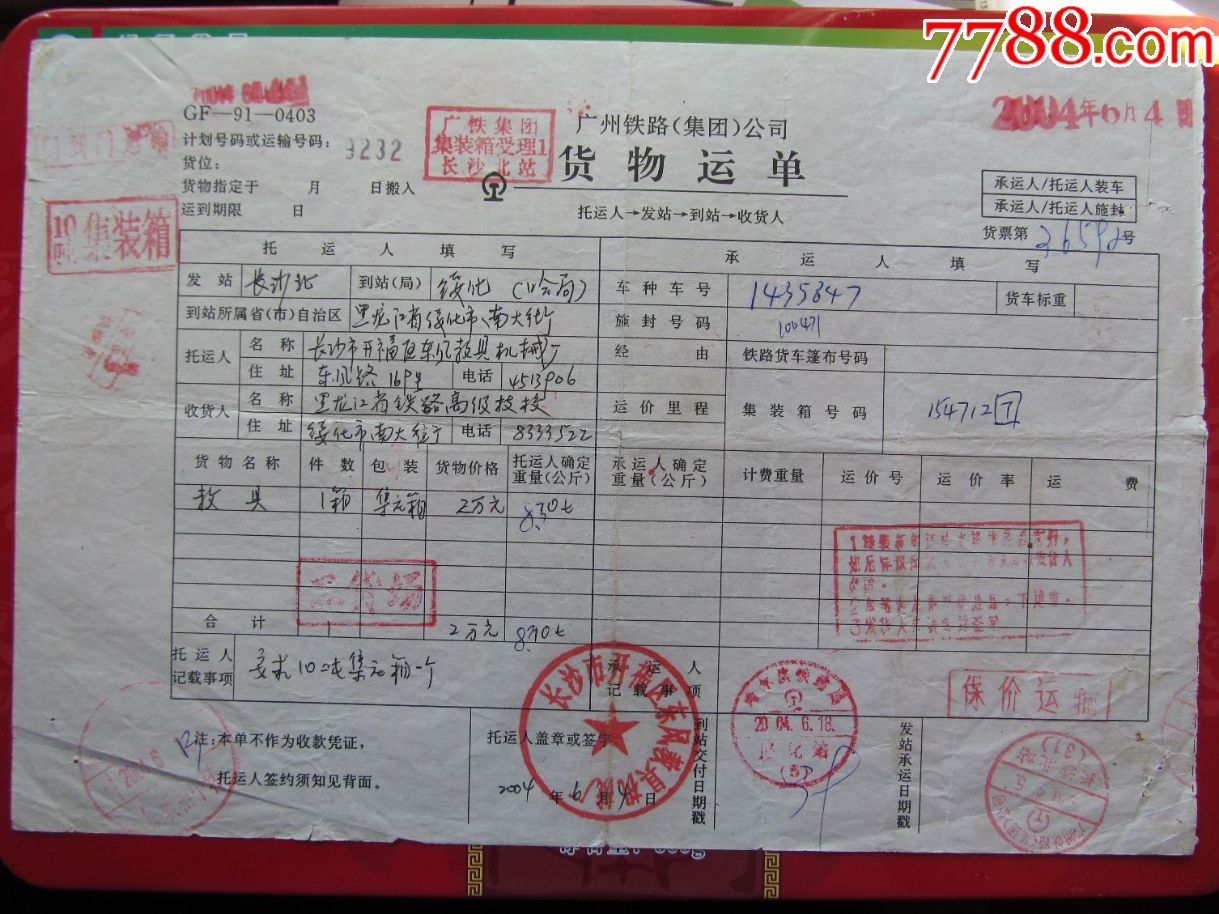 7788.com
GF—91—0403
计划号码或运输号码： 9232
货位：
货物指定于 月 日搬入
运到期限 日
广铁集团
集装箱受理1
长沙北站
广州铁路（集团）公司
货物运单
托运人→发站→到站→收货人
2004年6月4日
承运人/托运人装车
承运人/托运人施封
货票第 号
10吨 集装箱
托运人填写
承运人填写
发站 长沙北 到站(局) 绥化（哈局）
车种车号 1435847 货车标重
到站所属省(市)自治区 黑龙江省绥化市南大街
施封号码 100471
托运人 名称 长沙市开福区东风教具机械厂
经由 铁路货车篷布号码
住址 东风路169号 电话 4513906
收货人 名称 黑龙江省铁路高级技校
运价里程 集装箱号码 154712
住址 绥化市南大街 电话 8333522
货物名称 件数 包装 货物价格 托运人确定重量(公斤) 承运人确定重量(公斤) 计费重量 运价号 运价率 运费
教具 1箱 集装箱 2万元 8.30t
合计 2万元 8.30t
托运人记载事项 要求10吨集装箱一个
承运人记载事项
保价运输
注：本单不作为收款凭证，
托运人签约须知见背面。
托运人盖章或签字
2004年6月4日
长沙市开福区东风教具机械厂
到站交付日期戳
2004.6.18.
(5)
发站承运日期戳
长沙北站
(31)